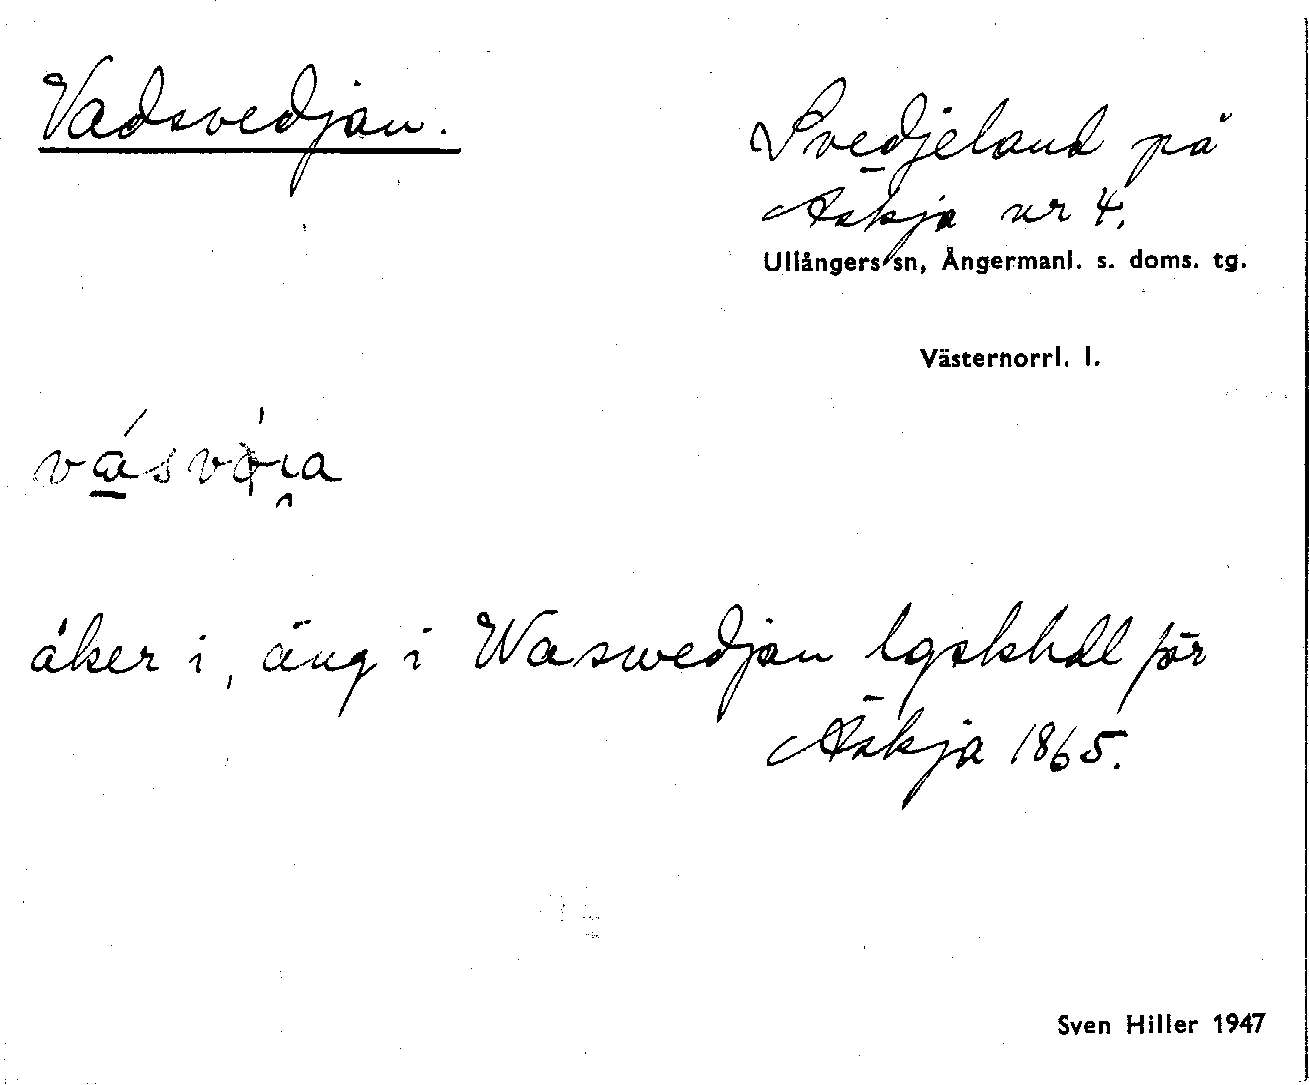 Vadsvedjan.
Svedjeland på
Äskja nr 4.
Ullångers sn, Ångermanl. s. doms. tg.
Västernorrl. l.
åker i, äng i Waswedjan lgskhdl för
Äskja 1865.
Sven Hiller 1947